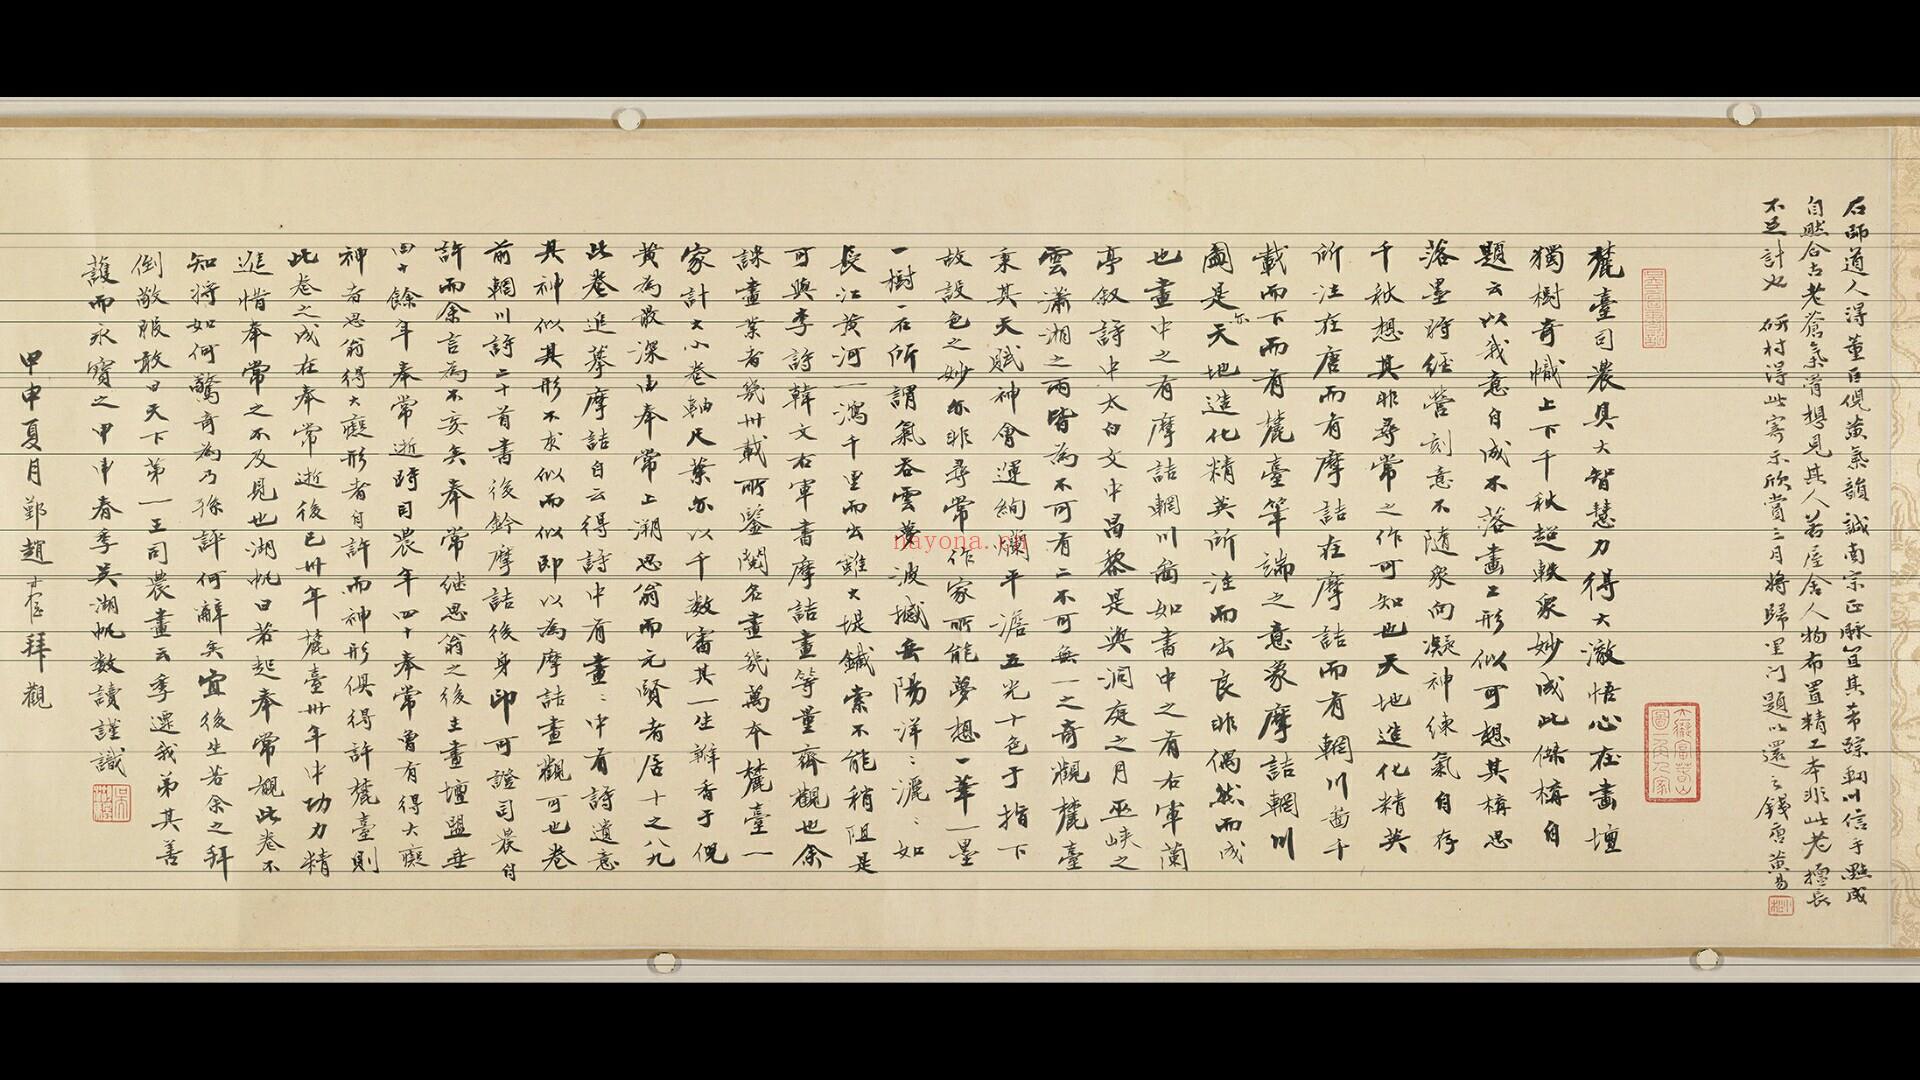 石師道人得董巨倪黃氣韻誠南宗正脉宜其希踪輞川信手點成
自然合古老蒼氣骨想見其人若屋舍人物布置精工本非此老擅長
不足計也 研村得此寄示欣賞三月將歸里門題以還之錢唐黃易
麓臺司農具大智慧力得大澈悟心在畫壇
獨樹奇幟上下千秋超軼眾妙成此傑構自
題云以我意自成不落畫工形似可想其構思
落墨時經營刻意不隨眾向凝神練氣自存
千秋想其非尋常之作可知也天地造化精英
所注在唐而有摩詰在摩詰而有輞川啚千
載而下而有麓臺筆端之意象摩詰輞川
圖是亦天地造化精英所注而出良非偶然而成
也畫中之有摩詰輞川啚如書中之有右軍蘭
亭叙詩中太白文中昌黎是與洞庭之月巫峽之
雲瀟湘之雨皆為不可有二不可無一之奇觀麓臺
秉其天賦神會運絢爛平澹五光十色于指下
故設色之妙亦非尋常作家所能夢想一筆一墨
一樹一石所謂氣吞雲夢波撼岳陽洋:灑:如
長江黃河一瀉千里而出雖大堤鐵索不能稍阻是
可與李詩韓文右軍書摩詰畫等量齊觀也余
諜畫業者幾卅載所鑒閱名畫幾萬本麓臺一
家計大小卷軸尺葉亦以千數審其一生瓣香于倪
黃為最深由奉常上溯思翁而元賢者居十之八九
此卷追摹摩詰自云得詩中有畫:中有詩遺意
其神似其形不求似而似即以為摩詰畫觀可也卷
前輞川詩二十首書後鈐摩詰後身印可證司農自
許而余言為不妄矣奉常继思翁之後主畫壇盟垂
四十餘年奉常逝時司農年四十奉常曾有得大癡
神者思翁得大癡形者自許而神形俱得許麓臺則
此卷之成在奉常逝後已卅年麓臺卅年中功力精
進惜奉常之不及見也湖帆曰若起奉常觀此卷不
知將如何驚奇為乃孫評何辭矣宜後生若余之拜
倒敬服敢曰天下第一王司農畫云季遷我弟其善
護而永寶之甲申春季吳湖帆數讀謹識
甲申夏月鄞趙 拜觀
nayona.cn